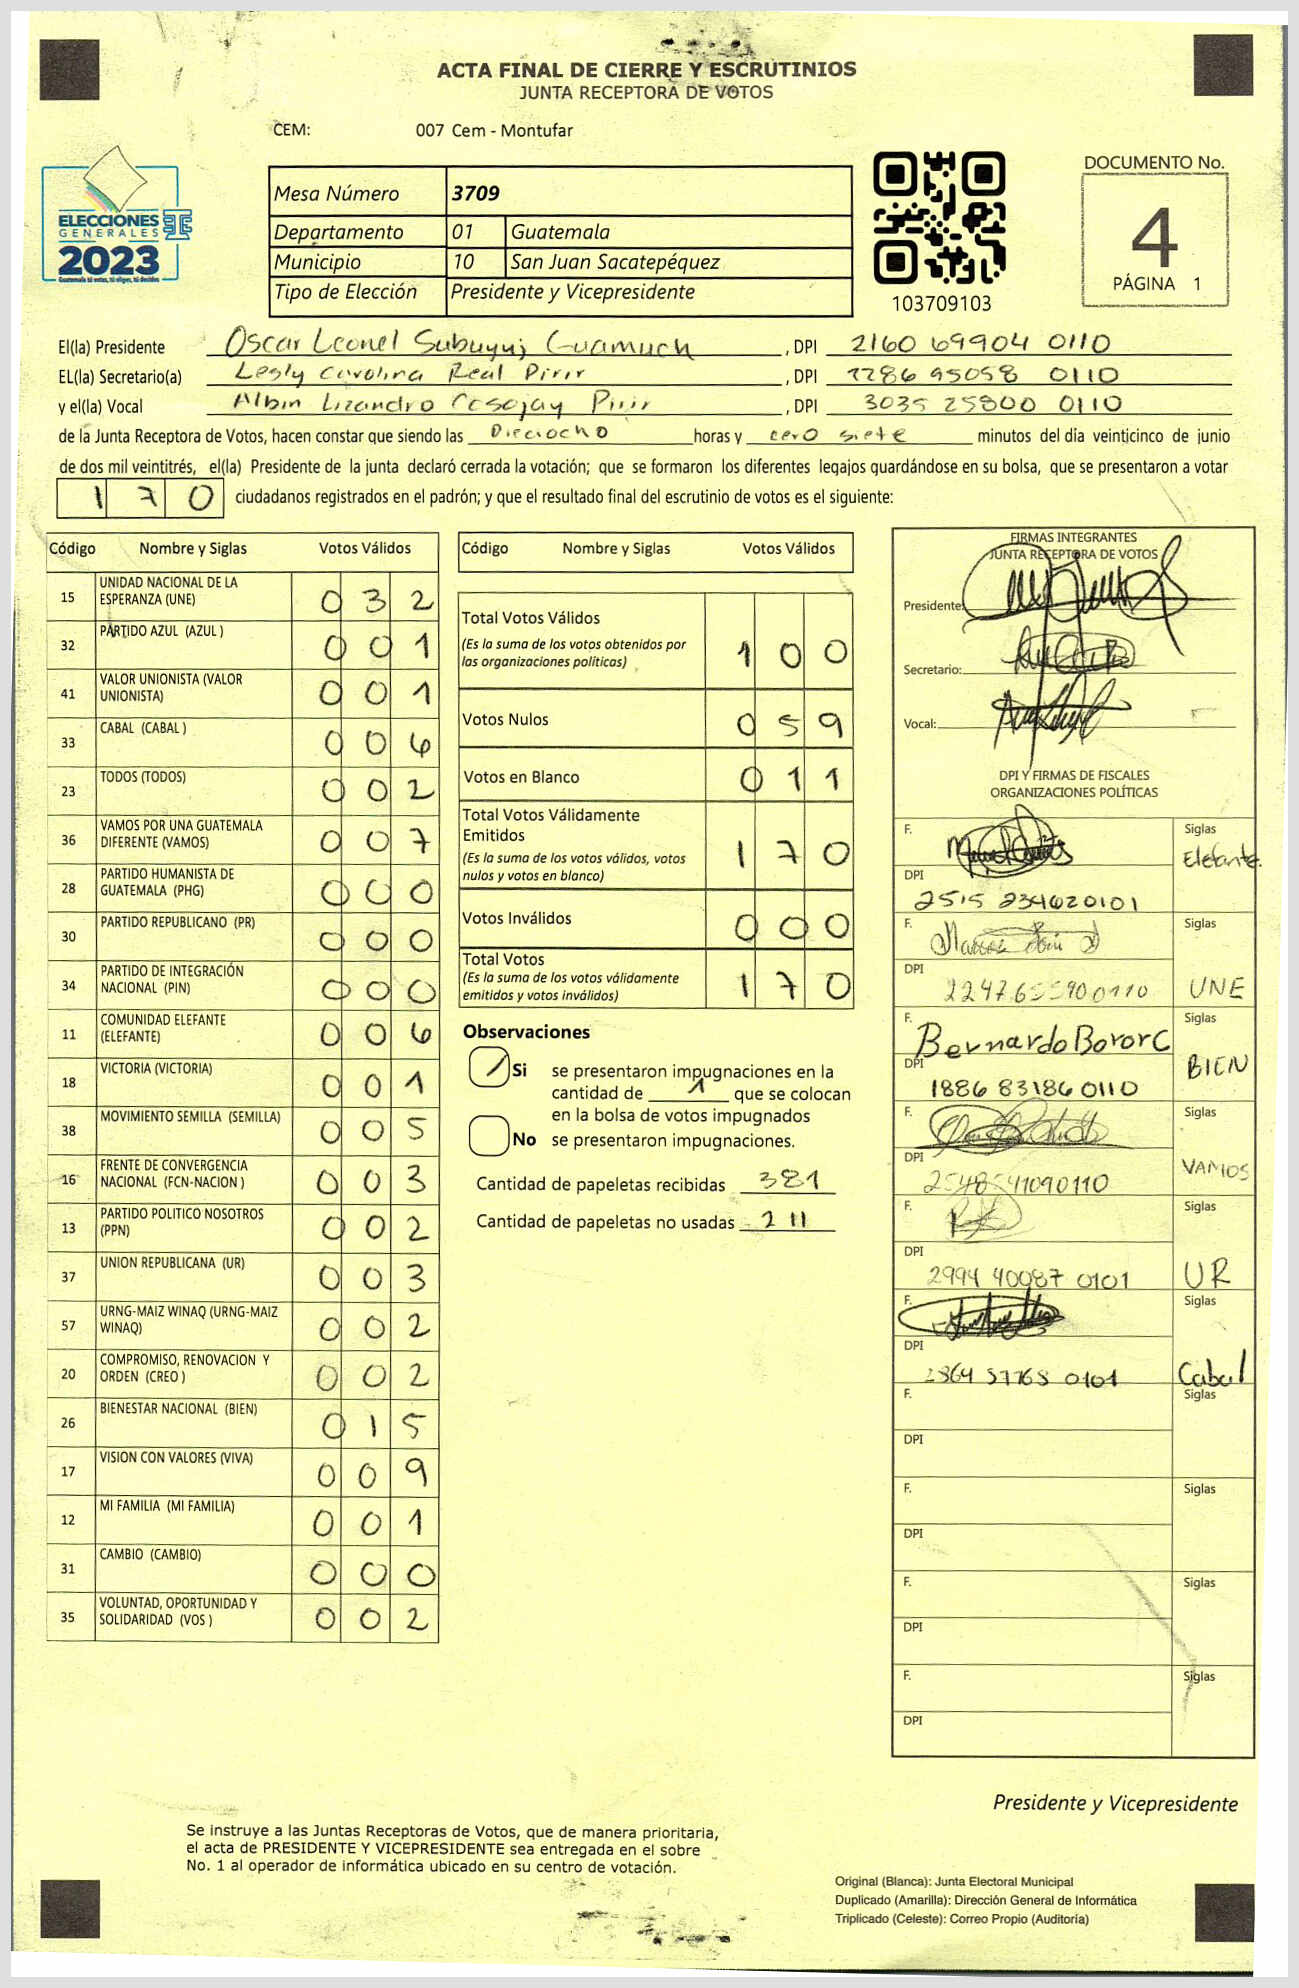 ACTA FINAL DE CIERRE Y ESCRUTINIOS
JUNTA RECEPTORA DE VOTOS
CEM: 007 Cem - Montufar
ELECCIONES TSE
GENERALES
2023
Guatemala tú votas, tú eliges, tú decides
Mesa Número 3709
Departamento 01 Guatemala
Municipio 10 San Juan Sacatepéquez
Tipo de Elección Presidente y Vicepresidente
103709103
DOCUMENTO No.
4
PÁGINA 1
El(la) Presidente Oscar Leonel Subuyuj Guamuch, DPI 2160 69904 0110
EL(la) Secretario(a) Lesly Carolina Real Pirir, DPI 95058 0110
y el(la) Vocal Albin Lizandro Pirir, DPI 3035 25800 0110
de la Junta Receptora de Votos, hacen constar que siendo las Dieciocho horas y cero siete minutos del día veinticinco de junio
de dos mil veintitrés, el(la) Presidente de la junta declaró cerrada la votación; que se formaron los diferentes legajos guardándose en su bolsa, que se presentaron a votar
170 ciudadanos registrados en el padrón; y que el resultado final del escrutinio de votos es el siguiente:
Código Nombre y Siglas Votos Válidos
15 UNIDAD NACIONAL DE LA ESPERANZA (UNE) 032
32 PARTIDO AZUL (AZUL ) 001
41 VALOR UNIONISTA (VALOR UNIONISTA) 001
33 CABAL (CABAL ) 006
23 TODOS (TODOS) 002
36 VAMOS POR UNA GUATEMALA DIFERENTE (VAMOS) 007
28 PARTIDO HUMANISTA DE GUATEMALA (PHG) 000
30 PARTIDO REPUBLICANO (PR) 000
34 PARTIDO DE INTEGRACIÓN NACIONAL (PIN) 000
11 COMUNIDAD ELEFANTE (ELEFANTE) 006
18 VICTORIA (VICTORIA) 001
38 MOVIMIENTO SEMILLA (SEMILLA) 005
16 FRENTE DE CONVERGENCIA NACIONAL (FCN-NACION ) 003
13 PARTIDO POLITICO NOSOTROS (PPN) 002
37 UNION REPUBLICANA (UR) 003
57 URNG-MAIZ WINAQ (URNG-MAIZ WINAQ) 002
20 COMPROMISO, RENOVACION Y ORDEN (CREO ) 002
26 BIENESTAR NACIONAL (BIEN) 015
17 VISION CON VALORES (VIVA) 009
12 MI FAMILIA (MI FAMILIA) 001
31 CAMBIO (CAMBIO) 000
35 VOLUNTAD, OPORTUNIDAD Y SOLIDARIDAD (VOS ) 002
Código Nombre y Siglas Votos Válidos
Total Votos Válidos
(Es la suma de los votos obtenidos por
las organizaciones políticas) 100
Votos Nulos 059
Votos en Blanco 011
Total Votos Válidamente
Emitidos
(Es la suma de los votos válidos, votos
nulos y votos en blanco) 170
Votos Inválidos 000
Total Votos
(Es la suma de los votos válidamente
emitidos y votos inválidos) 170
Observaciones
Si se presentaron impugnaciones en la
cantidad de 1 que se colocan
en la bolsa de votos impugnados
No se presentaron impugnaciones.
Cantidad de papeletas recibidas 381
Cantidad de papeletas no usadas 211
FIRMAS INTEGRANTES
JUNTA RECEPTORA DE VOTOS
Presidente:
Secretario:
Vocal:
DPI Y FIRMAS DE FISCALES
ORGANIZACIONES POLÍTICAS
F. Siglas Elefante.
DPI 2515 234620101
F. Siglas UNE
DPI 2247655900110
F. Bernardo Boror C Siglas BIEN
DPI 1886 83186 0110
F. Siglas VAMOS
DPI 2548541090110
F. Siglas UR
DPI 2994 40087 0101
F. Siglas Cabal
DPI 0101
F. Siglas
DPI
F. Siglas
DPI
F. Siglas
DPI
F. Siglas
DPI
Presidente y Vicepresidente
Se instruye a las Juntas Receptoras de Votos, que de manera prioritaria,
el acta de PRESIDENTE Y VICEPRESIDENTE sea entregada en el sobre
No. 1 al operador de informática ubicado en su centro de votación.
Original (Blanca): Junta Electoral Municipal
Duplicado (Amarilla): Dirección General de Informática
Triplicado (Celeste): Correo Propio (Auditoría)